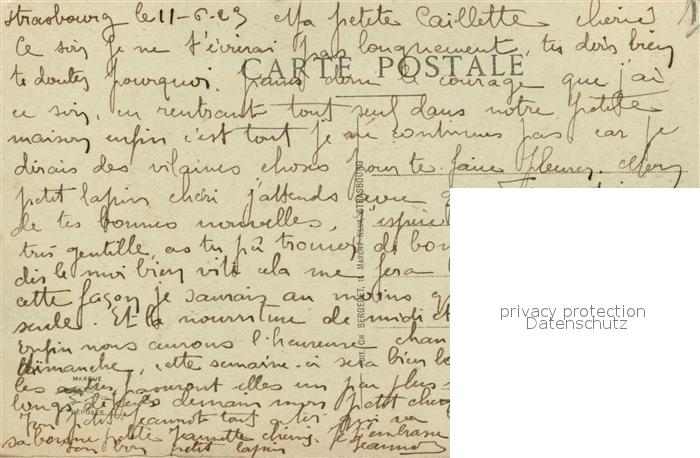 Strasbourg le 11-6-23 Ma petite Caillette chérie
Ce soir je ne t'écrirai pas longuement, tu dois bien
te doutes pourquoi, dans le courage que j'ai
CARTE POSTALE
ce soir, en rentrant tout seul dans notre petite
maison enfin c'est tout je ne continues pas car je
dirais des vilaines choses pour te faire pleurer. Mon
petit lapin chéri j'attends avec
de tes bonnes nouvelles, j'espère
très gentille, as tu pû trouver de bon
dis le moi bien vite cela me fera
cette façon je saurais au moins q
seule. Et la nourriture de midi et
enfin nous aurons l'heureuse chan
dimanche, cette semaine-ci sera bien lo
les pourront elles un peu plus
longs de demain mon petit
Ton petit Jeannot tout à toi qui
sa bonne petite Jeannette chérie. Je t'embrasse
ton bon petit lapin Jeannot
MARQUE
DÉPOSÉE
EDIT. CH. BERGERET, 11 MARCHÉ NEUF, STRASBOURG
privacy protection
Datenschutz